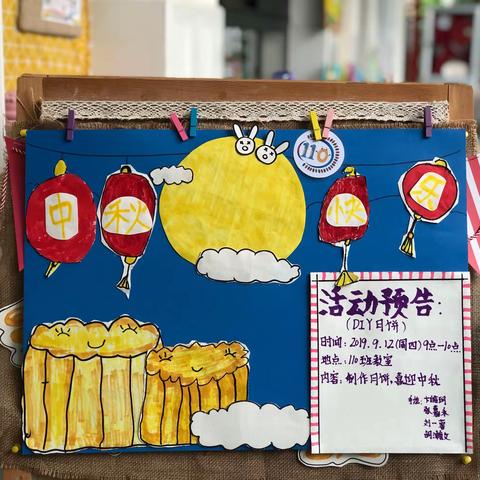 中
秋
快
乐
110
活动预告:
(DIY月饼)
时间: 2019.9.12(周四) 9点-10点
地点: 110班教室
内容: 制作月饼,喜迎中秋